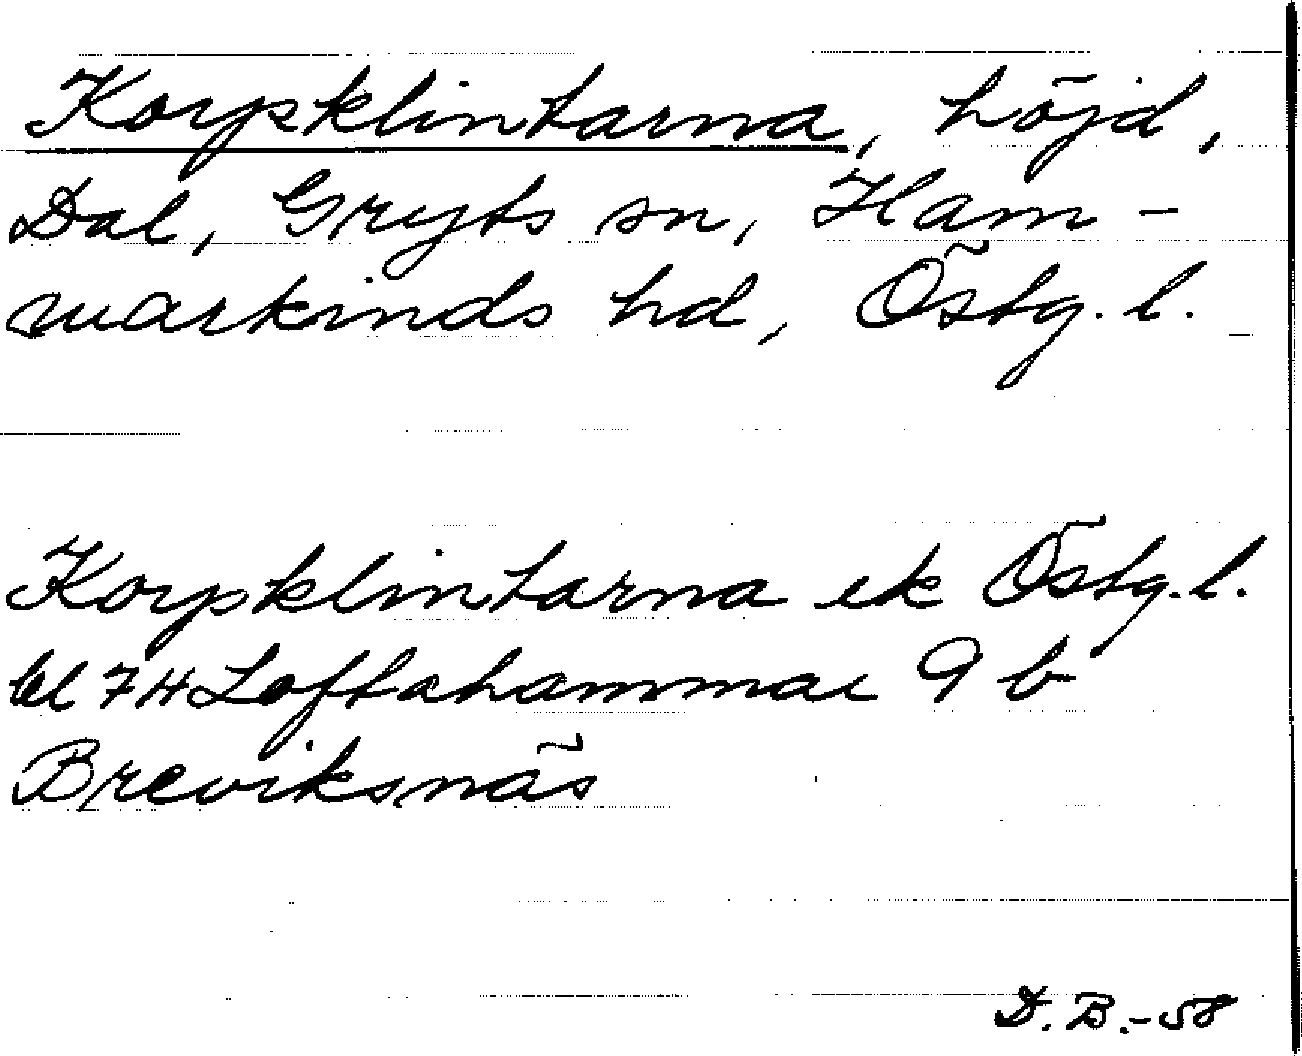 Korpsklintarna, höjd,
Dal, Gryts sn, Ham-
markinds hd, Östg. l.
Korpsklintarna ek Östg. l.
bl 74 Loftahammar 9 b
Breviksnäs
D. B.-58